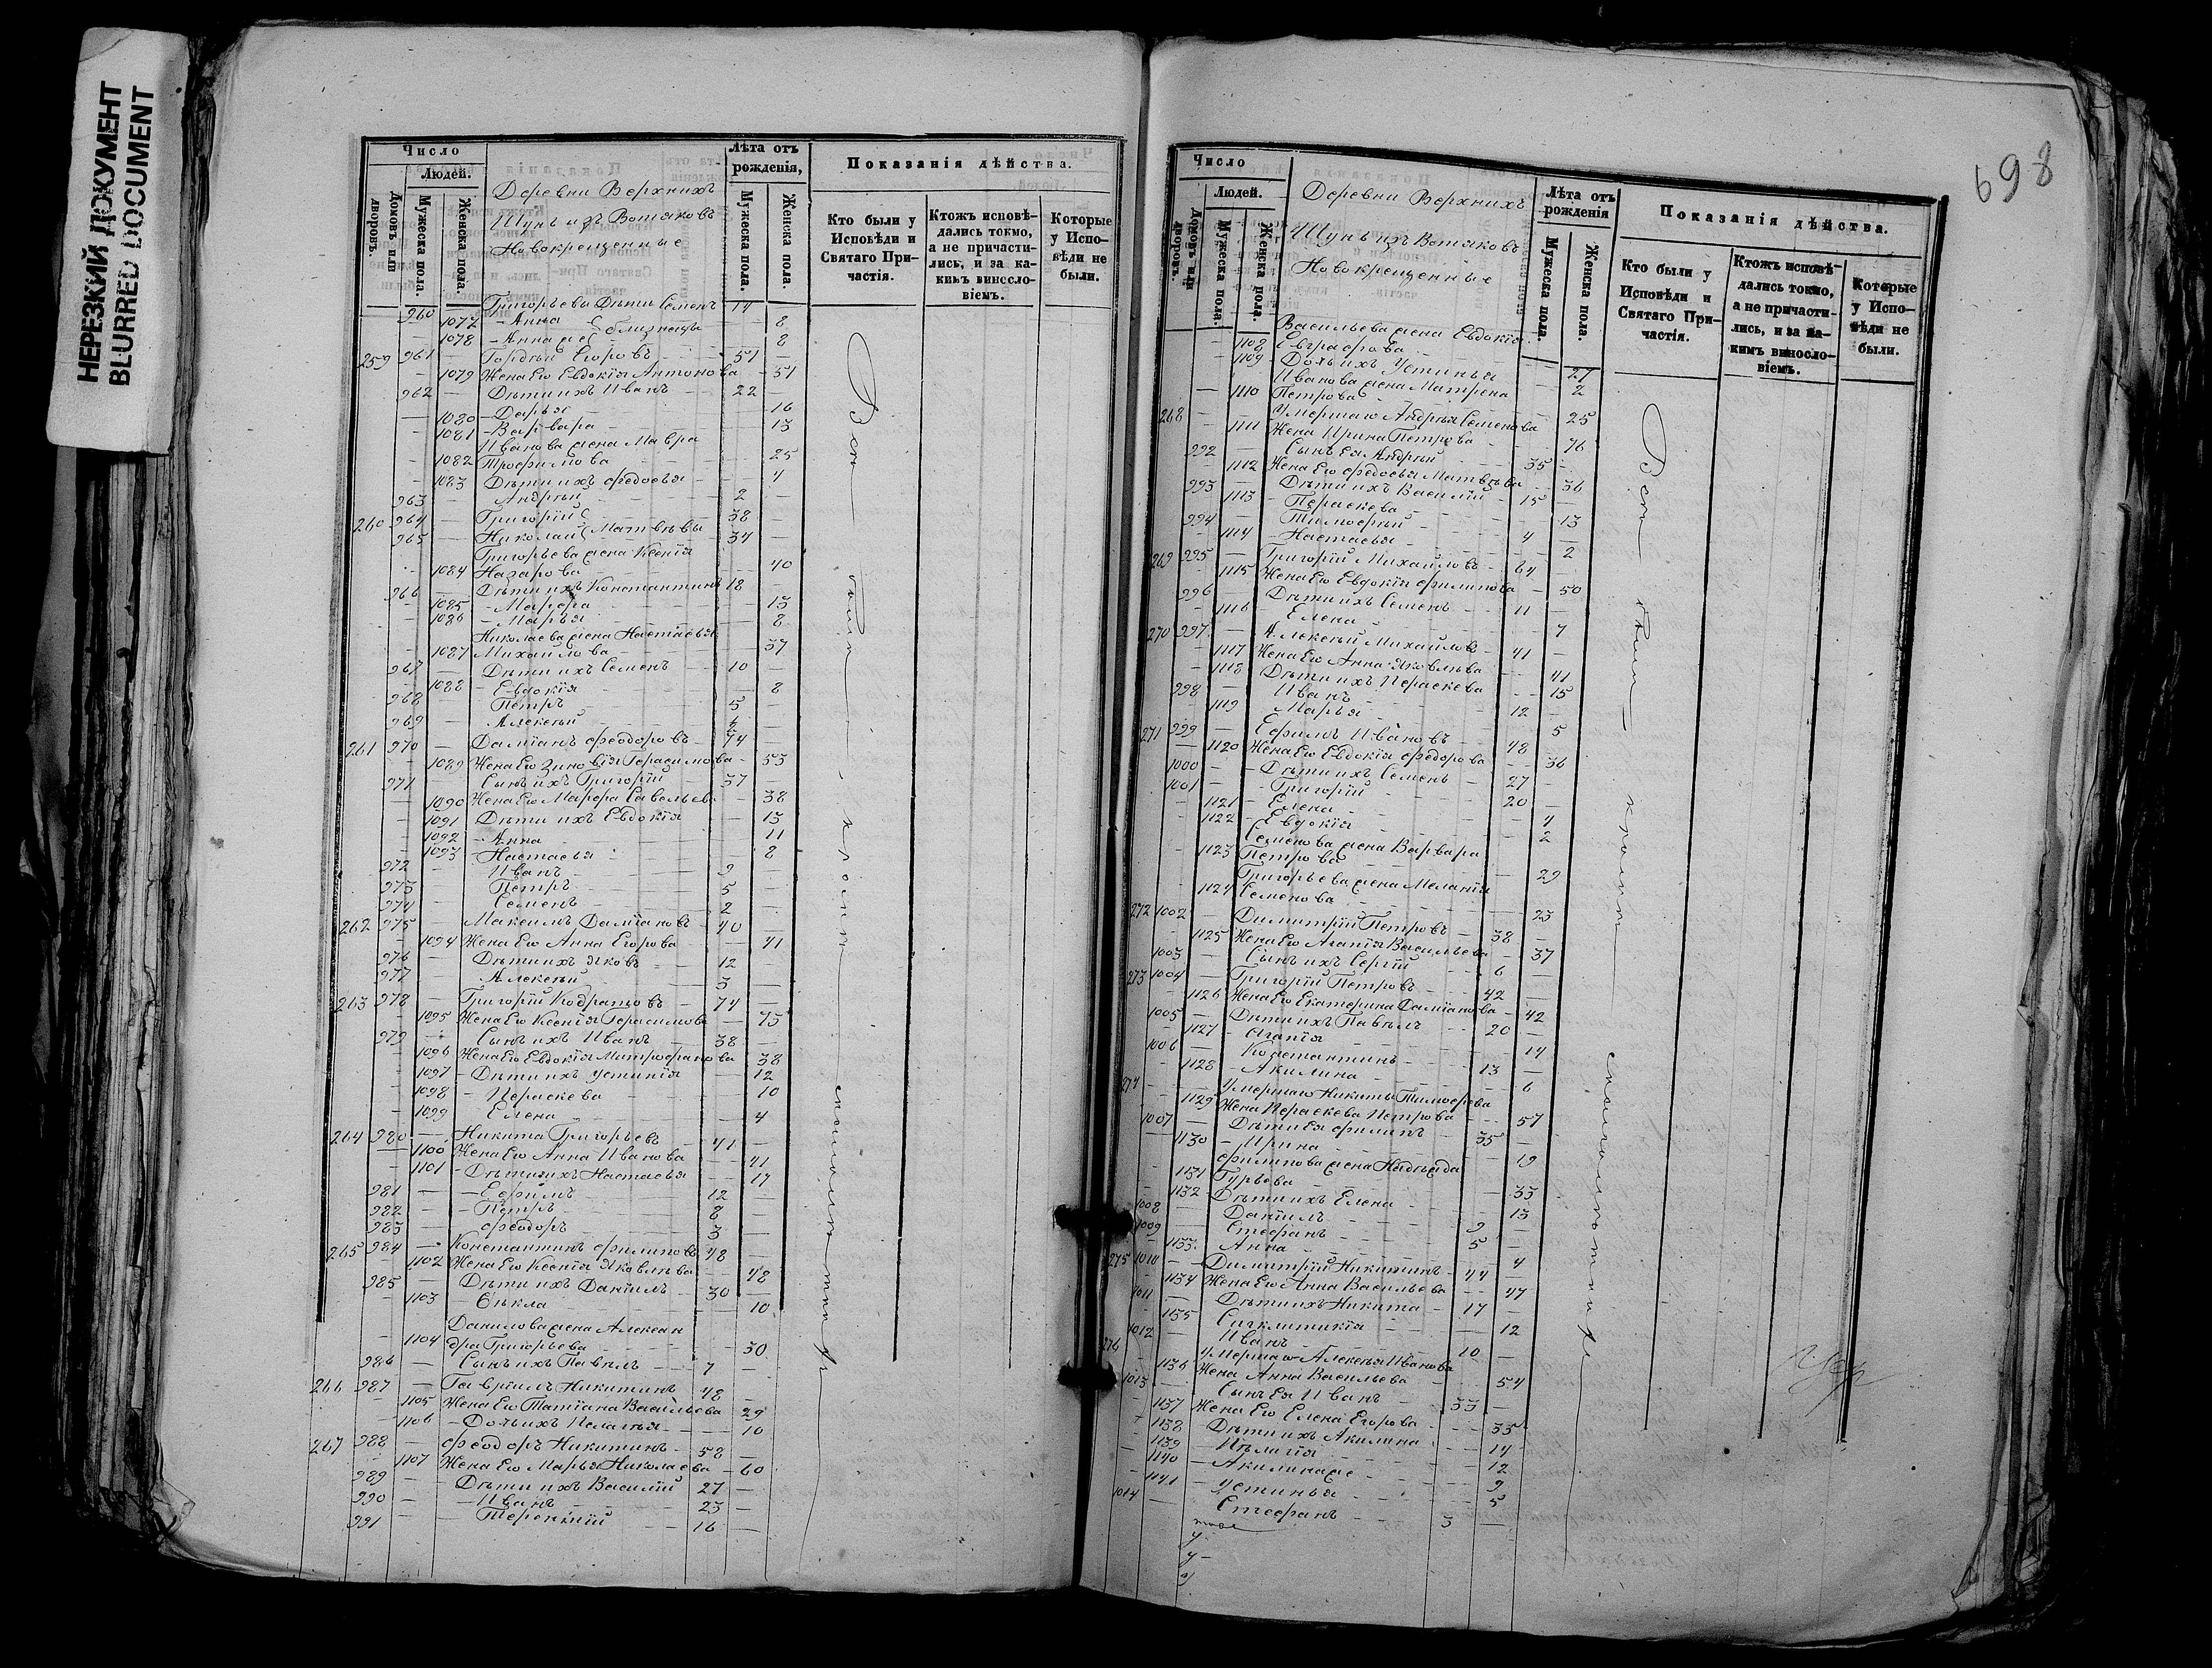 НЕРЕЗКИЙ ДОКУМЕНТ
BLURRED DOCUMENT
Число
Людей.
Домовъ или дворовъ.
Мужеска пола.
Женска пола.
Деревни Верхнихъ
Шунь изъ Вотяковъ
Новокрещенные
Лѣта отъ рожденія,
Мужеска пола.
Женска пола.
Показанія дѣйства.
Кто были у Исповѣди и Святаго Причастія.
Ктожъ исповѣдались токмо, а не причастились, и за какимъ винословіемъ.
Которые у Исповѣди не были.
960 — Григорьевы Дѣти Семенъ 14
1077 - Анна близнецы 8
1078 - Анна же 8
259 961 — Гордѣй Егоровъ 51
1079 Жена Его Евдокія Антонова 51
962 — Дѣти ихъ Иванъ 22
1080 - Дарья 16
1081 - Варвара 13
Иванова жена Мавра
1082 Трофимова 25
1083 Дѣти ихъ Федосья 4
963 — Андрей 2
260 964 — Григорій 38
965 — Николай Матвѣевы 34
Григорьева жена Ксенія
1084 Назарова 40
966 — Дѣти ихъ Константинъ 18
1085 - Марфа 13
1086 - Марья 8
Николаева жена Настасья
1087 Михайлова 37
967 — Дѣти ихъ Семенъ 10
1088 - Евдокія 8
968 — Петръ 5
969 — Алексѣй
261 970 — Даміанъ Феодоровъ 74
1089 Жена Его Зиновія Герасимова 53
971 Сынъ ихъ Григорій 37
1090 Жена Его Марфа Савельева 38
1091 Дѣти ихъ Евдокія 13
1092 - Анна 11
1093 - Настасья 8
972 — Иванъ 9
973 — Петръ 5
974 — Семенъ 2
262 975 — Максимъ Даміановъ 40
1094 Жена Его Анна Егорова 41
976 — Дѣти ихъ Яковъ 12
977 — Алексѣй 3
263 978 — Григорій Кодратовъ 74
1095 Жена Его Ксенія Герасимова 75
979 — Сынъ ихъ Иванъ 38
1096 Жена Его Евдокія Митрофанова 38
1097 - Дѣти ихъ Устинія 12
1098 - Параскева 10
1099 Елена 4
264 980 — Никита Григорьевъ 41
1100 Жена Его Анна Иванова 41
1101 - Дѣти ихъ Настасья 17
981 — Ефимъ 12
982 — Петръ 8
983 — Феодоръ 3
265 984 — Константинъ Филиповъ 48
1102 Жена Его Ксенія Яковлева 48
985 — Дѣти ихъ Даніилъ 30
1103 Ѳекла 10
Данилова жена Алексан
1104 дра Григорьева 30
986 — Сынъ ихъ Павелъ 7
266 987 — Гавріилъ Никитинъ 48
1105 Жена Его Татіана Васильева 29
1106 - Дочь ихъ Пелагѣя 10
267 988 — Феодоръ Никитинъ 58
1107 Жена Его Марья Николаева 60
989 — Дѣти ихъ Василій 27
990 — Иванъ 23
991 — Терентій 16
698
Число
Людей.
Домовъ или дворовъ.
Мужеска пола.
Женска пола.
Деревни Верхнихъ
Шунь изъ Вотяковъ
Новокрещенные
Лѣта отъ рожденія
Мужеска пола.
Женска пола.
Показанія дѣйства.
Кто были у Исповѣди и Святаго Причастія.
Ктожъ исповѣдались токмо, а не причастились, и за какимъ винословіемъ.
Которые у Исповѣди не были.
Васильева жена Евдокія
1108 Евграфова 27
1109 - Дочь ихъ Устинья 2
Иванова жена Матрена
1110 Петрова 25
268 Умершаго Андрея Семенова
1111 Жена Ирина Петрова 76
992 — Сынъ Ея Андрей 35
1112 Жена Его Федосья Матвѣева 36
993 — Дѣти ихъ Василій 15
1113 - Параскева 13
994 — Тимофей 4
1114 - Настасья 2
269 995 — Григорій Михайловъ 64
1115 Жена Его Евдокія Филипова 50
996 Дѣти ихъ Семенъ 11
1116 - Елена 7
270 997 — Алексѣй Михайловъ 41
1117 Жена Его Анна Яковлева 41
1118 Дѣти ихъ Параскева 15
998 — Иванъ 12
1119 Марья 5
271 999 — Ефимъ Ивановъ 48
1120 Жена Его Евдокія Федорова 36
1000 — Дѣти ихъ Семенъ 27
1001 — Григорій 20
1121 - Елена 4
1122 - Евдокія 2
Семенова жена Варвара
1123 Петрова 29
Григорьева жена Меланія
1124 Семенова 23
272 1002 — Димитрій Петровъ 38
1125 Жена Его Агапія Васильева 37
1003 — Сынъ ихъ Сергій 6
273 1004 — Григорій Петровъ 42
1126 Жена Его Екатерина Даміанова 42
1005 — Дѣти ихъ Павелъ 20
1127 - Агапія 14
1006 — Костантинъ 13
1128 - Акилина 6
274 Умершаго Никиты Тимофеева
1129 Жена Параскева Петрова 57
1007 — Дѣти Ея Филипъ 35
1130 - Ирина 19
Филипова жена Надѣжда
1131 Гурьева 33
1132 - Дѣти ихъ Елена 13
1008 — Даніилъ 9
1009 — Стефанъ 5
1133 Анна 4
275 1010 — Димитрій Никитинъ 44
1134 Жена Его Анна Васильева 47
1011 — Дѣти ихъ Никита 17
1135 Сигклитикія 12
1012 — Иванъ 10
276 Умершаго Алексѣя Иванова
1136 Жена Анна Васильева 54
1013 — Сынъ Ея Иванъ 33
1137 Жена Его Елена Егорова 35
1138 - Дѣти ихъ Акилина 14
1139 - Пелагія 12
1140 - Акилина же 9
1141 - Устинья 5
1014 — Стефанъ 3